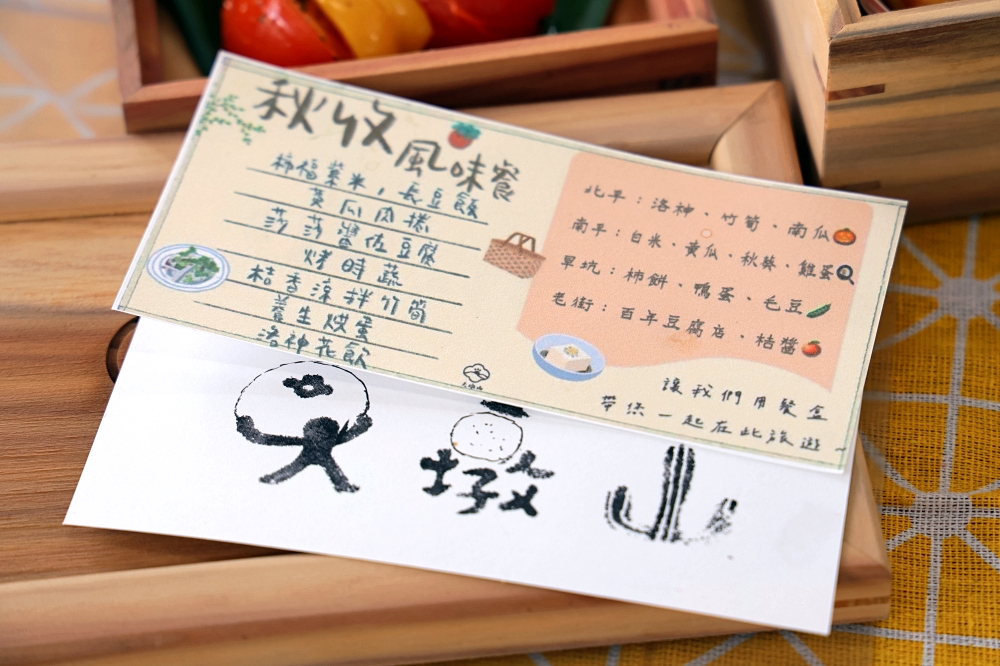 秋收風味餐
柿福菓米，長豆飯
黃瓜肉捲
莎莎醬佐豆腐
烤時蔬
桔香涼拌竹筍
養生烘蛋
洛神花飲
北平：洛神、竹筍、南瓜
南平：白米、黃瓜、秋葵、雞蛋
旱坑：柿餅、鴨蛋、毛豆
老街：百年豆腐店、桔醬
讓我們用餐盒
帶您一起在此旅遊～
大墩山